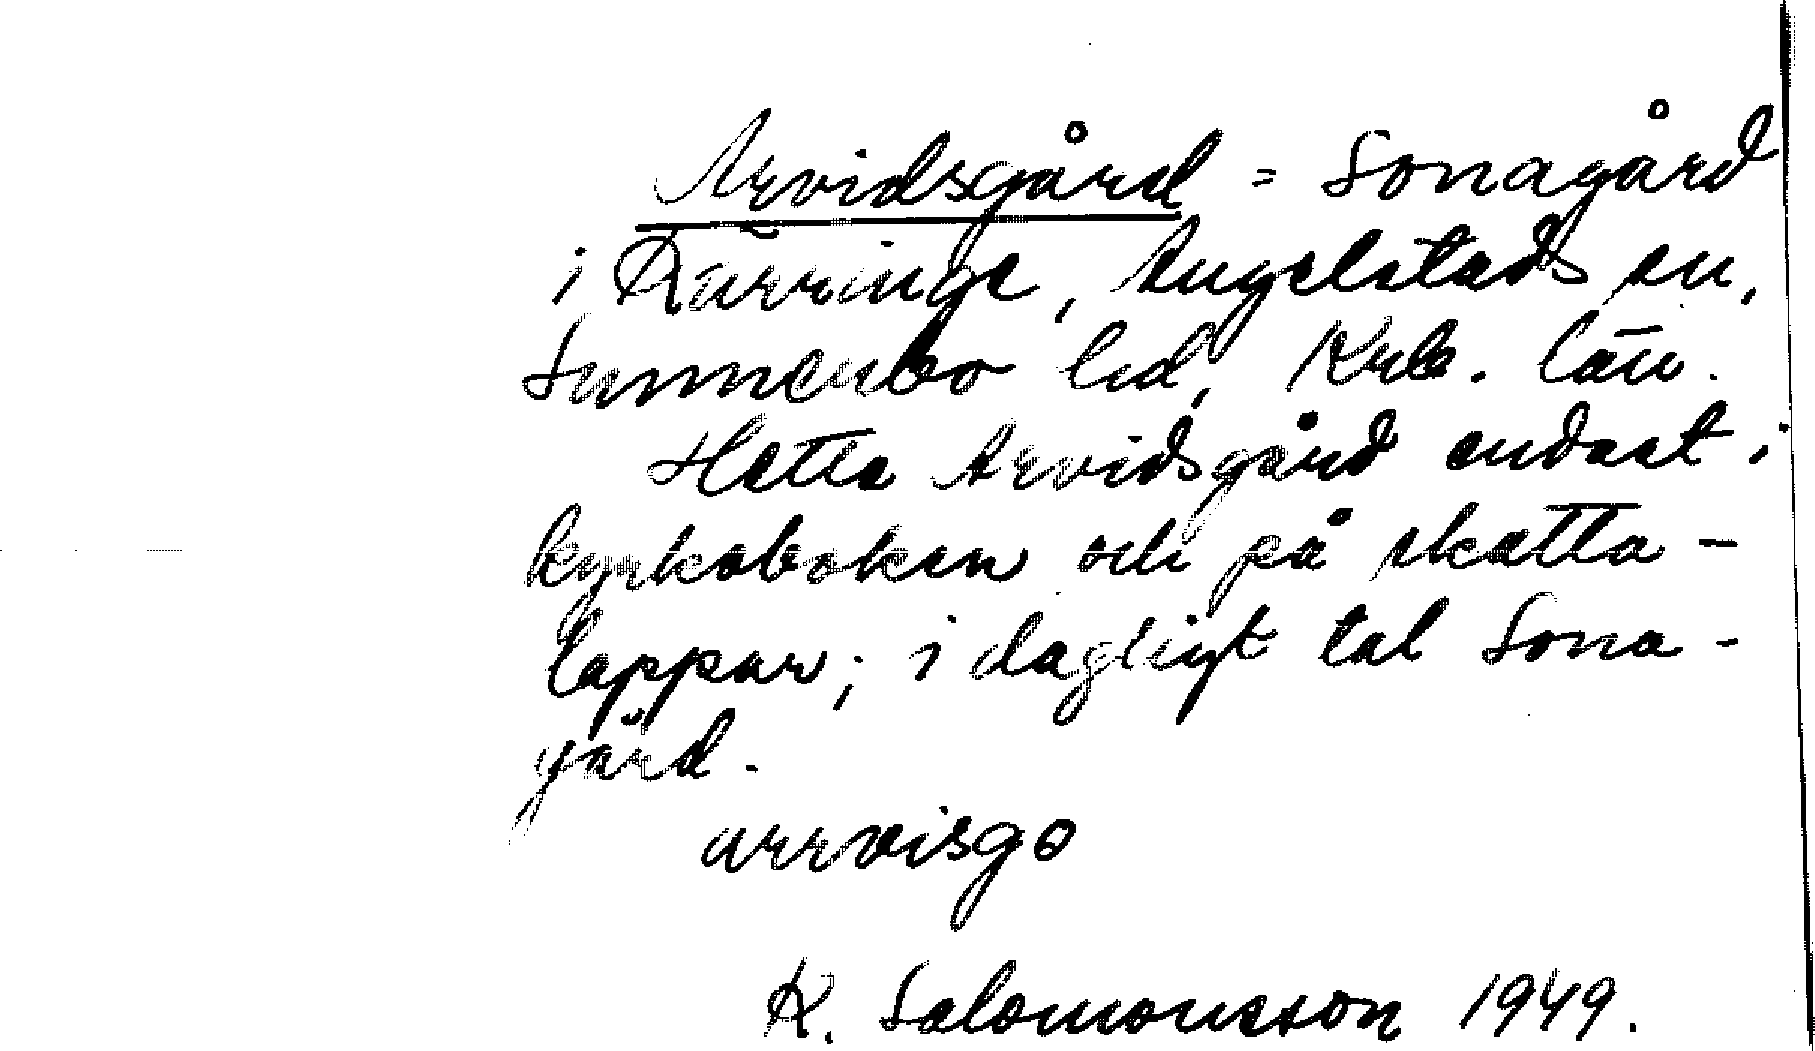 Arvidsgård = Sonagård
i Kärringe, Angelstads sn,
Sunnerbo hd, Krb. län.
Hette Arvidsgård endast i
kyrkoboken och på skatta-
lappar; i dagligt tal Sona-
gård.
arrvisgo
K. Salomonsson 1949.